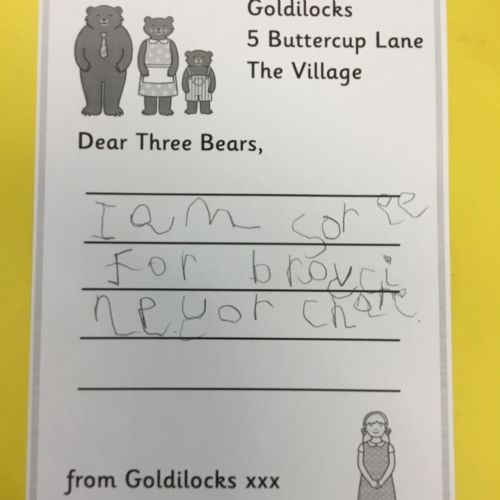 Goldilocks
5 Buttercup Lane
The Village
Dear Three Bears,
I am soree
for brouci
neyor chare.
from Goldilocks xxx